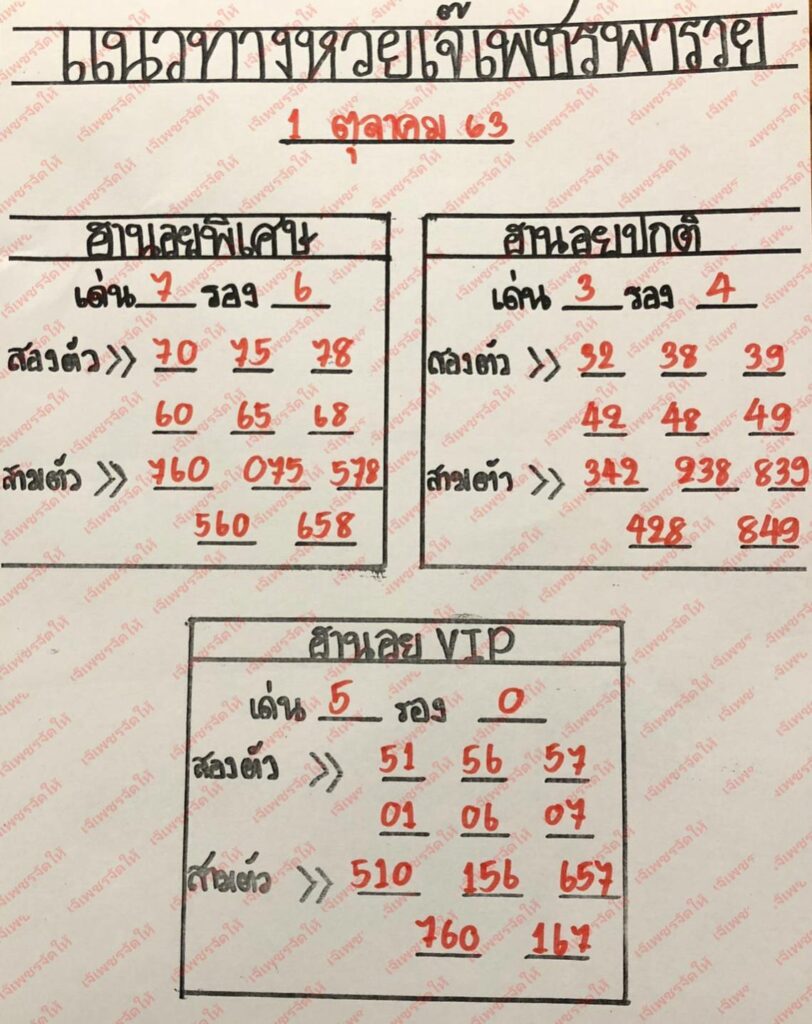 แนวทางหวยเจ๊เพชรพารวย
1 ตุลาคม 63
ฮานอยพิเศษ
เด่น 7 รอง 6
สองตัว >> 70 75 78
60 65 68
สามตัว >> 760 075 578
560 658
ฮานอยปกติ
เด่น 3 รอง 4
สองตัว >> 32 38 39
42 48 49
สามตัว >> 342 238 839
428 849
ฮานอย VIP
เด่น 5 รอง 0
สองตัว >> 51 56 57
01 06 07
สามตัว >> 510 156 657
760 167
เจ๊เพชรจัดให้